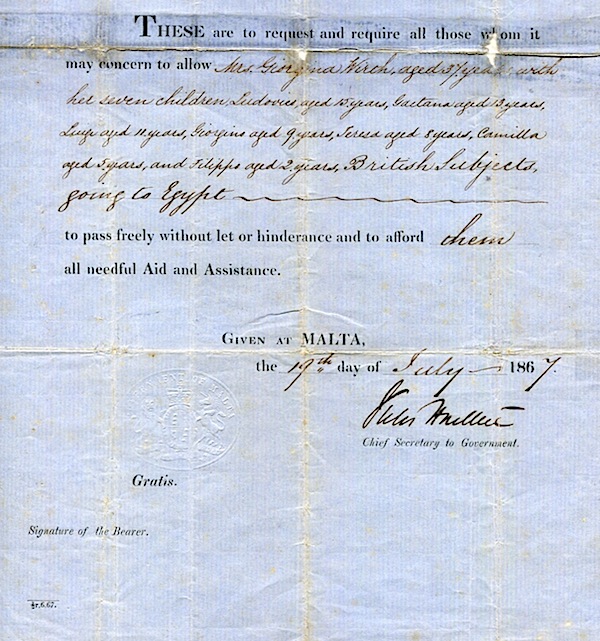 THESE are to request and require all those whom it
may concern to allow Mrs. Giorgina aged 37 years, with
her seven children, Ludovico, aged 15 years, Gaetana aged 13 years,
Luigi aged 11 years, Giorgina aged 9 years, Teresa aged 8 years, Camilla
aged 5 years, and Filippo aged 2 years, British Subjects,
going to Egypt
to pass freely without let or hinderance and to afford them
all needful Aid and Assistance.
GIVEN AT MALTA,
the 19th day of July 1867.
Chief Secretary to Government.
Gratis.
Signature of the Bearer.